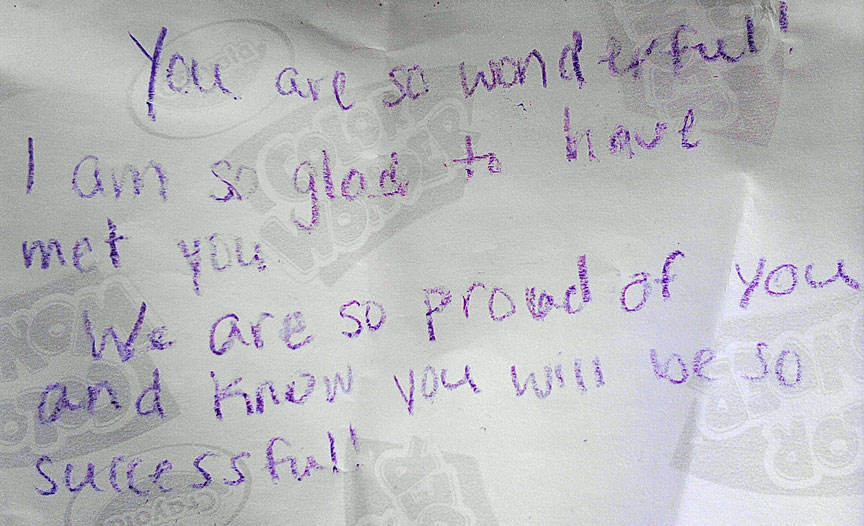 You are so wonderful!
I am so glad to have
met you
We are so proud of you
and know you will be so
successful!
Crayola
COLOR
WONDER
COLOR
WONDER
Crayola